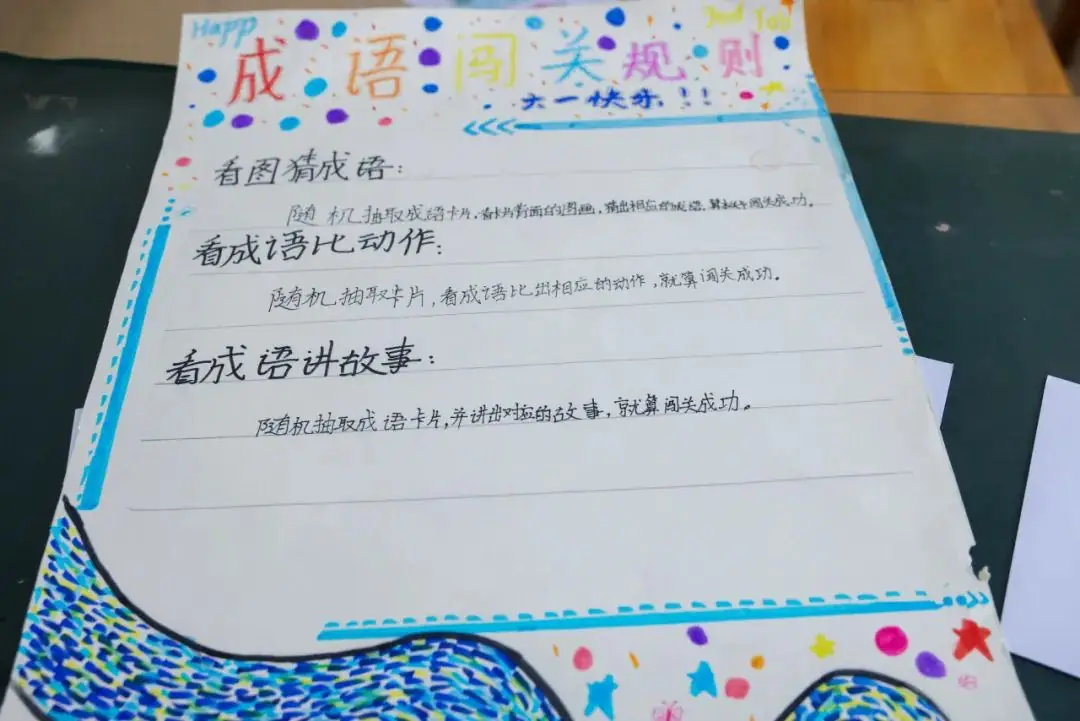 Happ
成语闯关规则
六一快乐!!
看图猜成语:
随机抽取成语卡片,看卡片背面的图画,猜出相应的成语,算闯关成功。
看成语比动作:
随机抽取卡片,看成语比出相应的动作,就算闯关成功。
看成语讲故事:
随机抽取成语卡片,并讲出对应的故事,就算闯关成功。